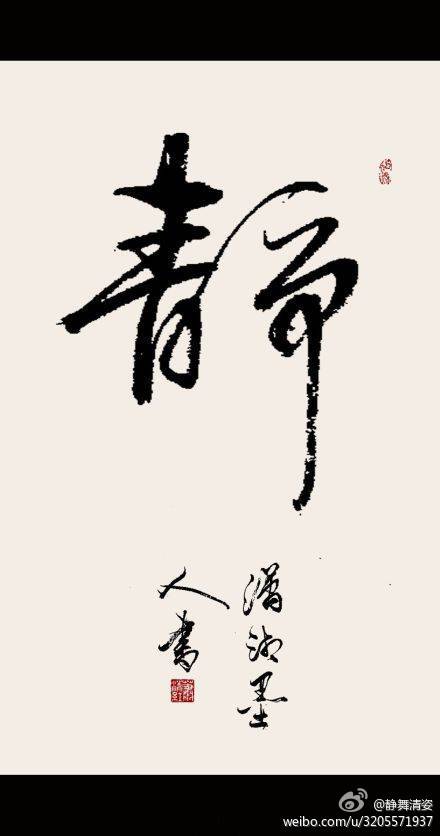 静
潇湘墨
人书
@静舞清姿
weibo.com/u/3205571937